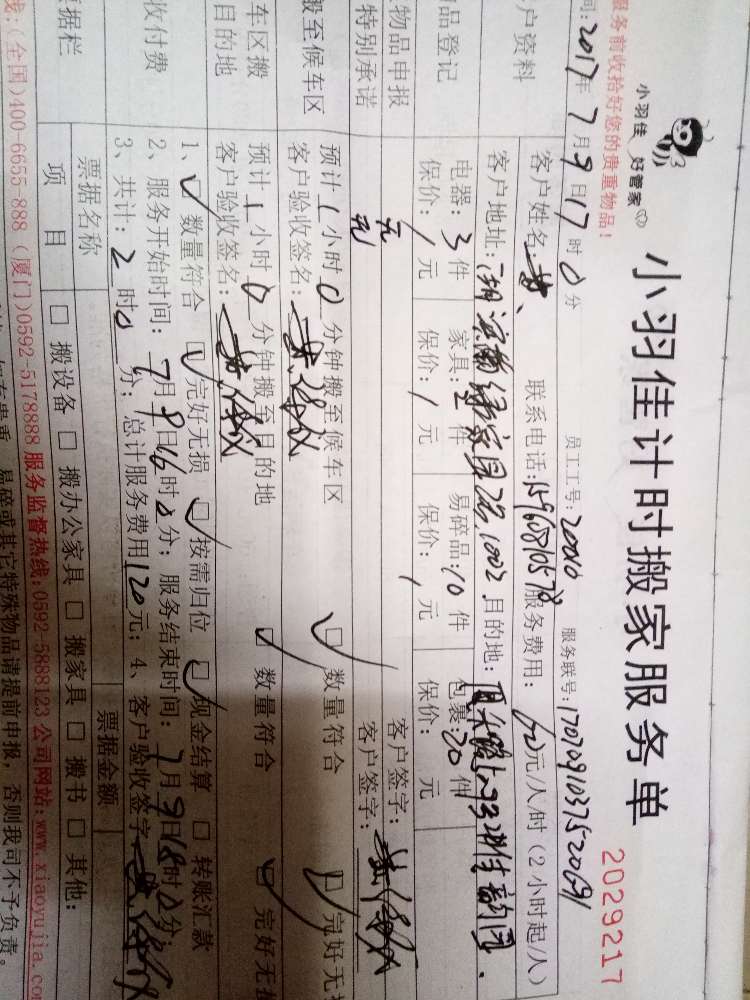 小羽佳 好管家
小羽佳计时搬家服务单
2029217
服务前收拾好您的贵重物品!
间:2017年7月9日17时0分 员工工号:20010 服务联号:
户资料 客户姓名: 联系电话: 服务费用: 60元/人/时(2小时起/人)
客户地址: 目的地:
品登记 电器:3件 家具: 件 易碎品:10件 包裹:30件
保价: 元 保价: 元 保价: 元 保价: 元
物品申报 元 客户签字:
特别承诺 元 客户签字:
般至候车区 预计1小时0分钟搬至候车区 数量符合 完好无损
客户验收签名:
车区搬 预计1小时0分钟搬至目的地 数量符合 完好无损
目的地 客户验收签名:
收付费 1、 数量符合 完好无损 按需归位 现金结算 转账汇款
2、服务开始时间:7月9日16时0分;服务结束时间:7月9日18时0分;
3、共计:2时0分;总计服务费用120元;4、客户验收签字
据栏 票据名称 票据金额
项目 搬设备 搬办公家具 搬家具 搬书 其他:
线:(全国)400-6655-888 (厦门)0592-5178888 服务监督热线:0592-5888123 公司网站:www.xiaoyujia.co
易碎或其它特殊物品请提前申报,否则我司不予负责。